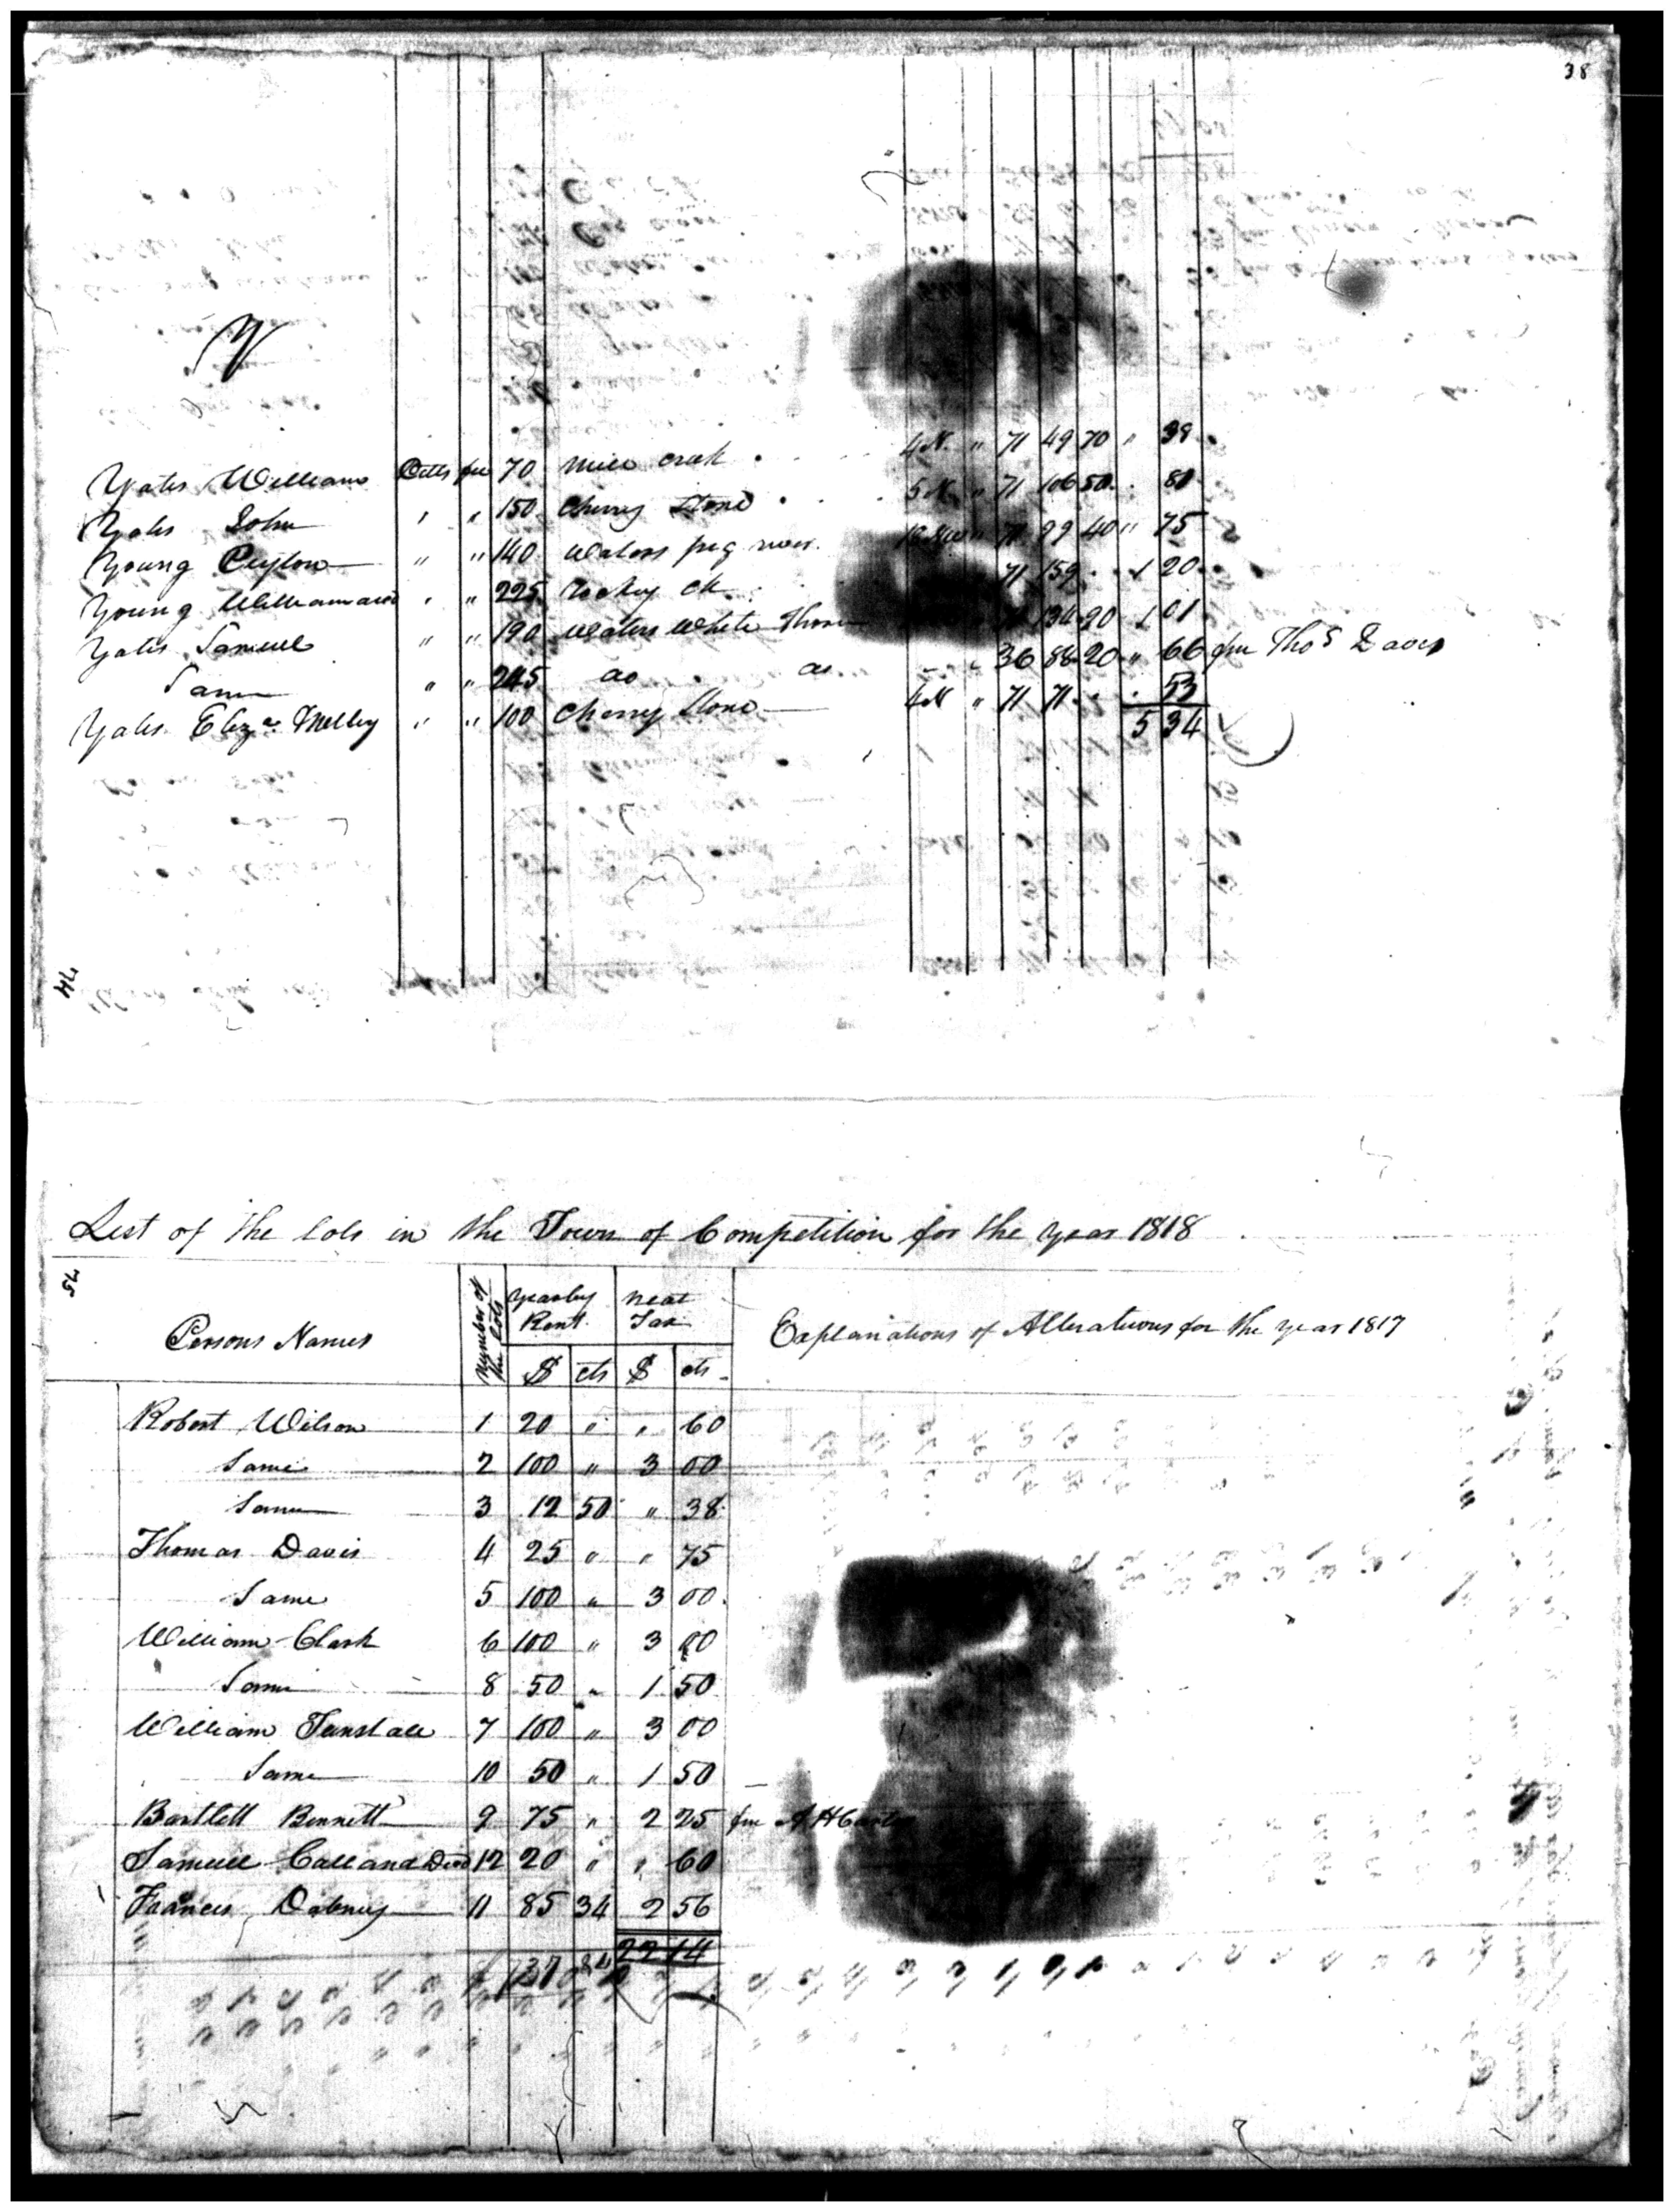 38
Y
Yates William Pitts fee 70 mill creek 4 N. " 71 49 70 " 38
Yates John " " 150 Cherry Stone 5 N " 71 106 50 . 80
Young Peyton " " 140 waters pig river. " 71 99 40 " 75
Young William " " 225 Rocky ck 71 159 . 1 20
Yates Samuel " " 190 waters white Thorn 134 90 1 01
Same " " 245 do do 36 88 20 " 66 fm Thos Davis
Yates Eliza " " 100 Cherry Stone 4 N " 71 71 . . 53
5 34
74
List of the lots in the Town of Competition for the year 1818
75
Persons Names Number of the lots yearly Rent. neat Tax Explanations of Alterations for the year 1817
$ cts $ cts
Robert Wilson 1 20 " " 60
Same 2 100 " 3 00
Same 3 12 50 " 38
Thomas Davis 4 25 " " 75
Same 5 100 " 3 00
William Clark 6 100 " 3 00
Same 8 50 " 1 50
William Tunstall 7 100 " 3 00
Same 10 50 " 1 50
Bartlett Bennett 9 75 " 2 25 fm A H
Samuel Calland Decd 12 20 " " 60
Francis Dabney 11 85 34 2 56
22 14